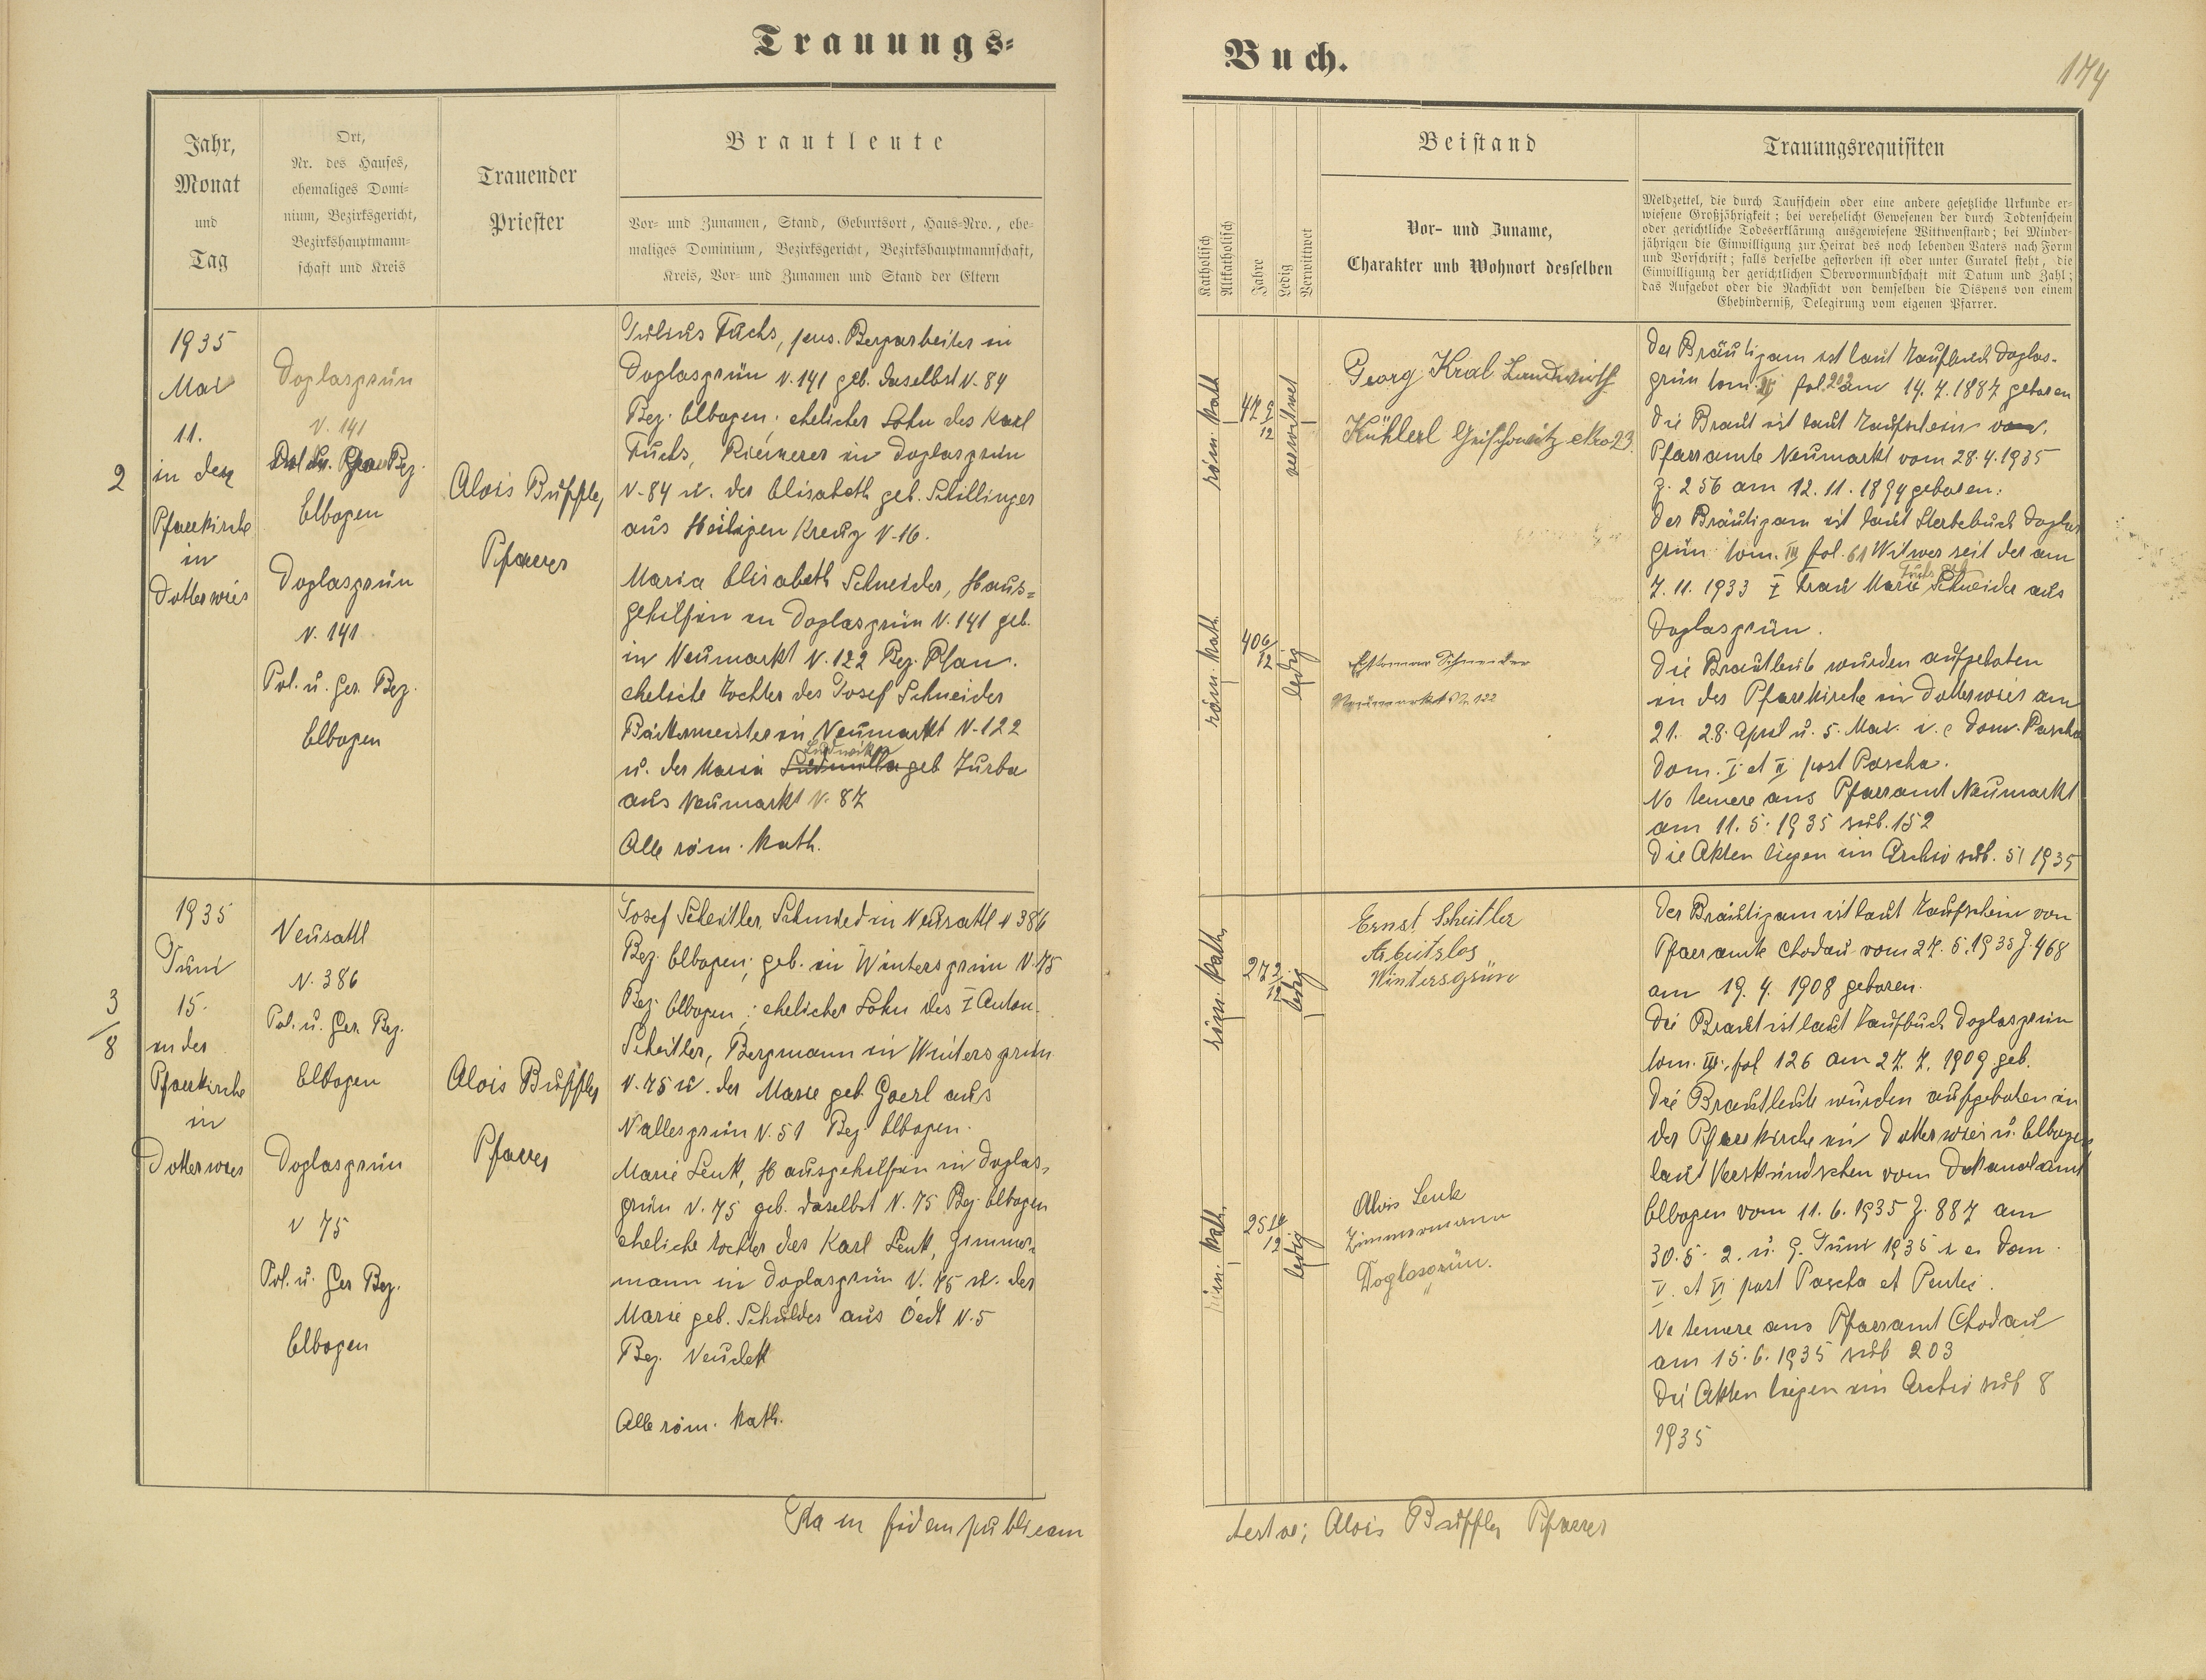 Trauungs=
Buch.
174
Jahr,
Monat
und
Tag
Ort,
Nr. des Hauses,
ehemaliges Domi-
nium, Bezirksgericht,
Bezirkshauptmann-
schaft und Kreis
Trauender
Priester
Brautleute
Vor- und Zunamen, Stand, Geburtsort, Haus-Nro., ehe-
maliges Dominium, Bezirksgericht, Bezirkshauptmannschaft,
Kreis, Vor- und Zunamen und Stand der Eltern
Katholisch
Altkatholisch
Jahre
Ledig
Verwittwet
Beistand
Vor- und Zuname,
Charakter und Wohnort desselben
Trauungsrequisiten
Meldzettel, die durch Taufschein oder eine andere gesetzliche Urkunde er-
wiesene Großjährigkeit; bei verehelicht Gewesenen der durch Todtenschein
oder gerichtliche Todeserklärung ausgewiesene Wittwenstand; bei Minder-
jährigen die Einwilligung zur Heirat des noch lebenden Vaters nach Form
und Vorschrift; falls derselbe gestorben ist oder unter Curatel steht, die
Einwilligung der gerichtlichen Obervormundschaft mit Datum und Zahl;
das Aufgebot oder die Nachsicht von demselben die Dispens von einem
Ehehinderniß, Delegirung vom eigenen Pfarrer.
2
1935
Mai
11.
in der
Pfarrkirche
in
Dotterwies
Doglasgrün
N. 141
Bez.
Elbogen
Doglasgrün
N. 141
Pol. u. Ger. Bez.
Elbogen
Alois Buffler,
Pfarrer
Julius Fuchs, pens. Bergarbeiter in
Doglasgrün N. 141 geb. daselbst N. 84
Bez. Elbogen; ehelicher Sohn des Karl
Fuchs, Riemerer in Doglasgrün
N. 84 u. der Elisabeth geb. Schillinger
aus Heiligen Kreuz N. 16.
Maria Elisabeth Schneider, Haus=
gehilfin in Doglasgrün N. 141 geb.
in Neumarkt N. 122 Bez. Plan.
eheliche Tochter des Josef Schneider
Bäckermeister in Neumarkt N. 122
Ludwika
u. der Maria Ludmilla geb Turba
aus Neumarkt N. 87
Alle röm. kath.
röm. kath
47 9/12
verwitwet
Georg Kral Landwirth
Kühlerl Grischowitz Nro 23.
röm. kath.
40 6/12
ledig
Schneider
Neumarkt N. 122
Der Bräutigam ist laut Taufbuch Doglas-
grün tom. III fol. 202 am 14. 7. 1887 geboren
Die Braut ist laut Taufschein vom
Pfarramte Neumarkt vom 28. 4. 1935
Z. 256 am 12. 11. 1894 geboren.
Der Bräutigam ist laut Sterbebuch Doglas
grün tom. III fol. 61 Witwer seit der am
Fuchs geb.
7. 11. 1933 † Frau Marie Schneider aus
Doglasgrün.
Die Brautleute wurden aufgeboten
in der Pfarrkirche in Dotterwies am
21. 28. April u. 5. Mai i. e Dom. Pascha
Dom. I et II post Pascha.
Ne temere ans Pfarramt Neumarkt
am 11. 5. 1935 sub. 152
Die Akten liegen im Archiv sub. 51 1935
3/8
1935
Juni
15.
in der
Pfarrkirche
in
Dotterwies
Neusattl
N. 386
Pol. u. Ger. Bez.
Elbogen
Doglasgrün
N 75
Pol. u. Ger Bez.
Elbogen
Alois Buffler
Pfarrer
Josef Scheitler, Schmied in Neusattl N 386
Bez. Elbogen; geb. in Wintersgrün N. 75
Bez. Elbogen; ehelicher Sohn des † Anton
Scheitler, Bergmann in Wintersgrün
N. 75 u. der Marie geb. Goerl aus
Nallesgrün N. 51 Bez. Elbogen.
Marie Lenk, Hausgehilfin in Doglas-
grün N. 75 geb. daselbst N. 75 Bez Elbogen
eheliche Tochter des Karl Lenk, Zimmer-
mann in Doglasgrün N. 75 u. der
Marie geb. Schuldes aus Oedt N. 5
Bez. Neudek
Alle röm. kath.
röm. kath.
27 2/12
ledig
Ernst Scheitler
Arbeitslos
Wintersgrün
röm. kath.
25 10/12
ledig
Alois Lenk
Zimmermann
Doglasgrün.
Der Bräutigam ist laut Taufschein vom
Pfarramte Chodau vom 27. 5. 1935 Z. 468
am 19. 4. 1908 geboren.
Die Braut ist laut Taufbuch Doglasgrün
tom. III. fol 126 am 27. 7. 1909 geb.
Die Brautleute wurden aufgeboten in
der Pfarrkirche in Dotterwies u. Elbogen
laut Verkündschein vom Dekanalamt
Elbogen vom 11. 6. 1935 Z. 887 am
30. 5. 2. u. 9. Juni 1935 i. e. Dom.
V. et VI post Pascha et Pentec.
Ne temere ans Pfarramt Chodau
am 15. 6. 1935 sub 203
Die Akten liegen im Archiv sub 8
1935
Ita in fidem publicam
testor; Alois Buffler Pfarrer